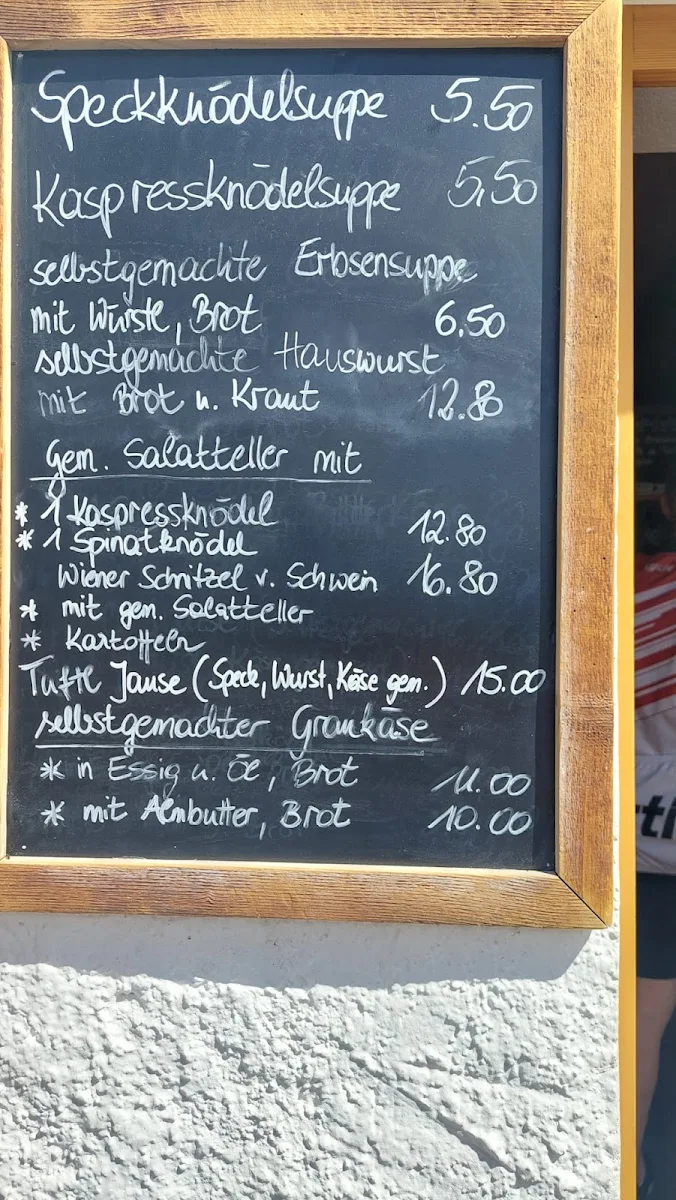 Speckknödelsuppe 5.50
Kaspressknödelsuppe 5,50
selbstgemachte Erbsensuppe
mit Würstl, Brot 6,50
selbstgemachte Hauswurst
mit Brot u. Kraut 12.80
Gem. Salatteller mit
* 1 Kaspressknödel 12.80
* 1 Spinatknödel
Wiener Schnitzel v. Schwein 16.80
* mit gem. Salatteller
* Kartoffeln
Tuftl Jause (Speck, Wurst, Käse gem.) 15.00
selbstgemachter Graukäse
* in Essig u. Öl, Brot 11.00
* mit Almbutter, Brot 10.00